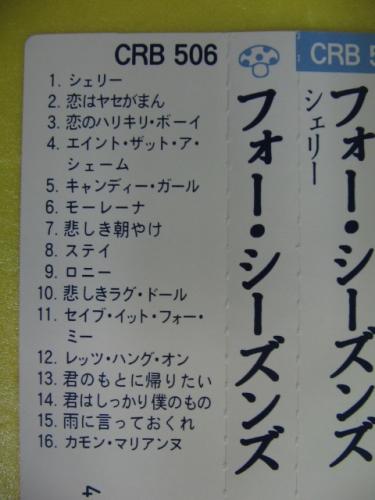 CRB 506
1. シェリー
2. 恋はヤセがまん
3. 恋のハリキリ・ボーイ
4. エイント・ザット・ア・
シェーム
5. キャンディー・ガール
6. モーレーナ
7. 悲しき朝やけ
8. ステイ
9. ロニー
10. 悲しきラグ・ドール
11. セイブ・イット・フォー・
ミー
12. レッツ・ハング・オン
13. 君のもとに帰りたい
14. 君はしっかり僕のもの
15. 雨に言っておくれ
16. カモン・マリアンヌ
フォー・シーズンズ
CRB 5
フォー・シーズンズ
シェリー
4